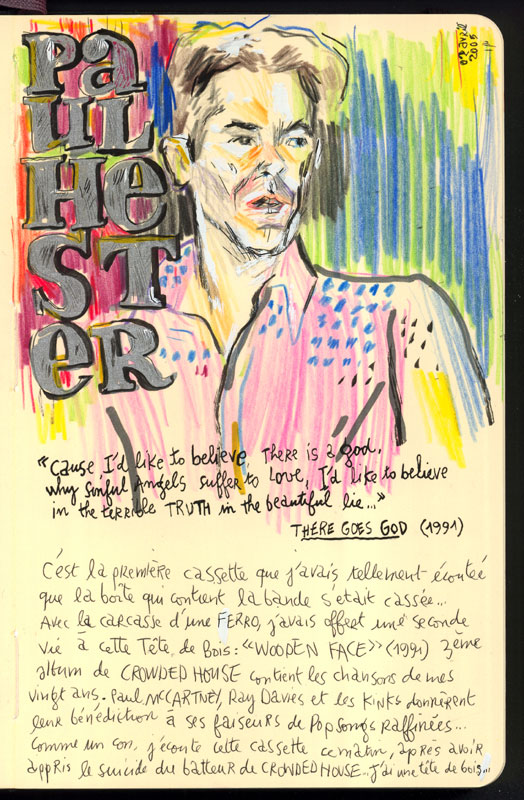 PAUL HESTER
2005
"Cause I'd like to believe, There is a god,
why sinful Angels suffer to Love, I'd like to believe
in the terrible TRUTH in the beautiful lie..."
THERE GOES GOD (1991)
C'est la première cassette que j'avais tellement écoutée
que la boîte qui contient la bande s'était cassée...
Avec la carcasse d'une FERRO, j'avais offert une seconde
vie à cette Tête de Bois : «WOODEN FACE» (1991) 3ème
album de CROWDED HOUSE contient les chansons de mes
vingt ans. Paul McCARTNEY, Ray Davies et les KINKS donnèrent
leur bénédiction à ses faiseurs de Pop Songs Raffinées...
Comme un con, j'écoute cette cassette ce matin, après avoir
appris le suicide du batteur de CROWDED HOUSE... J'ai une tête de bois...